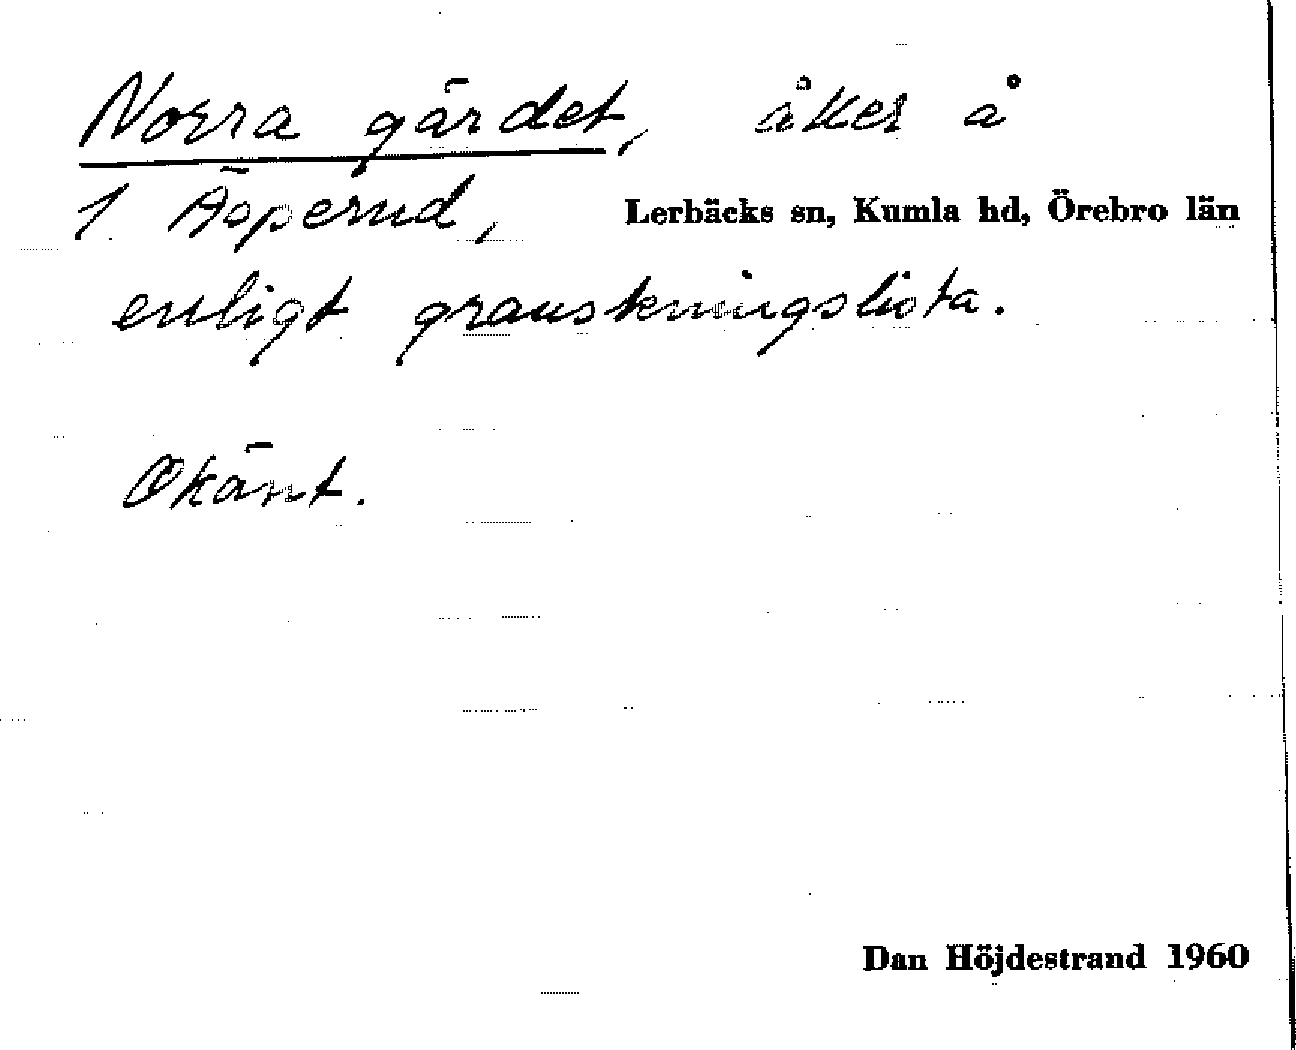 Norra gärdet, åker å
1 Äsperud, Lerbäcks sn, Kumla hd, Örebro län
enligt granskningslista.
Okänt.
Dan Höjdestrand 1960